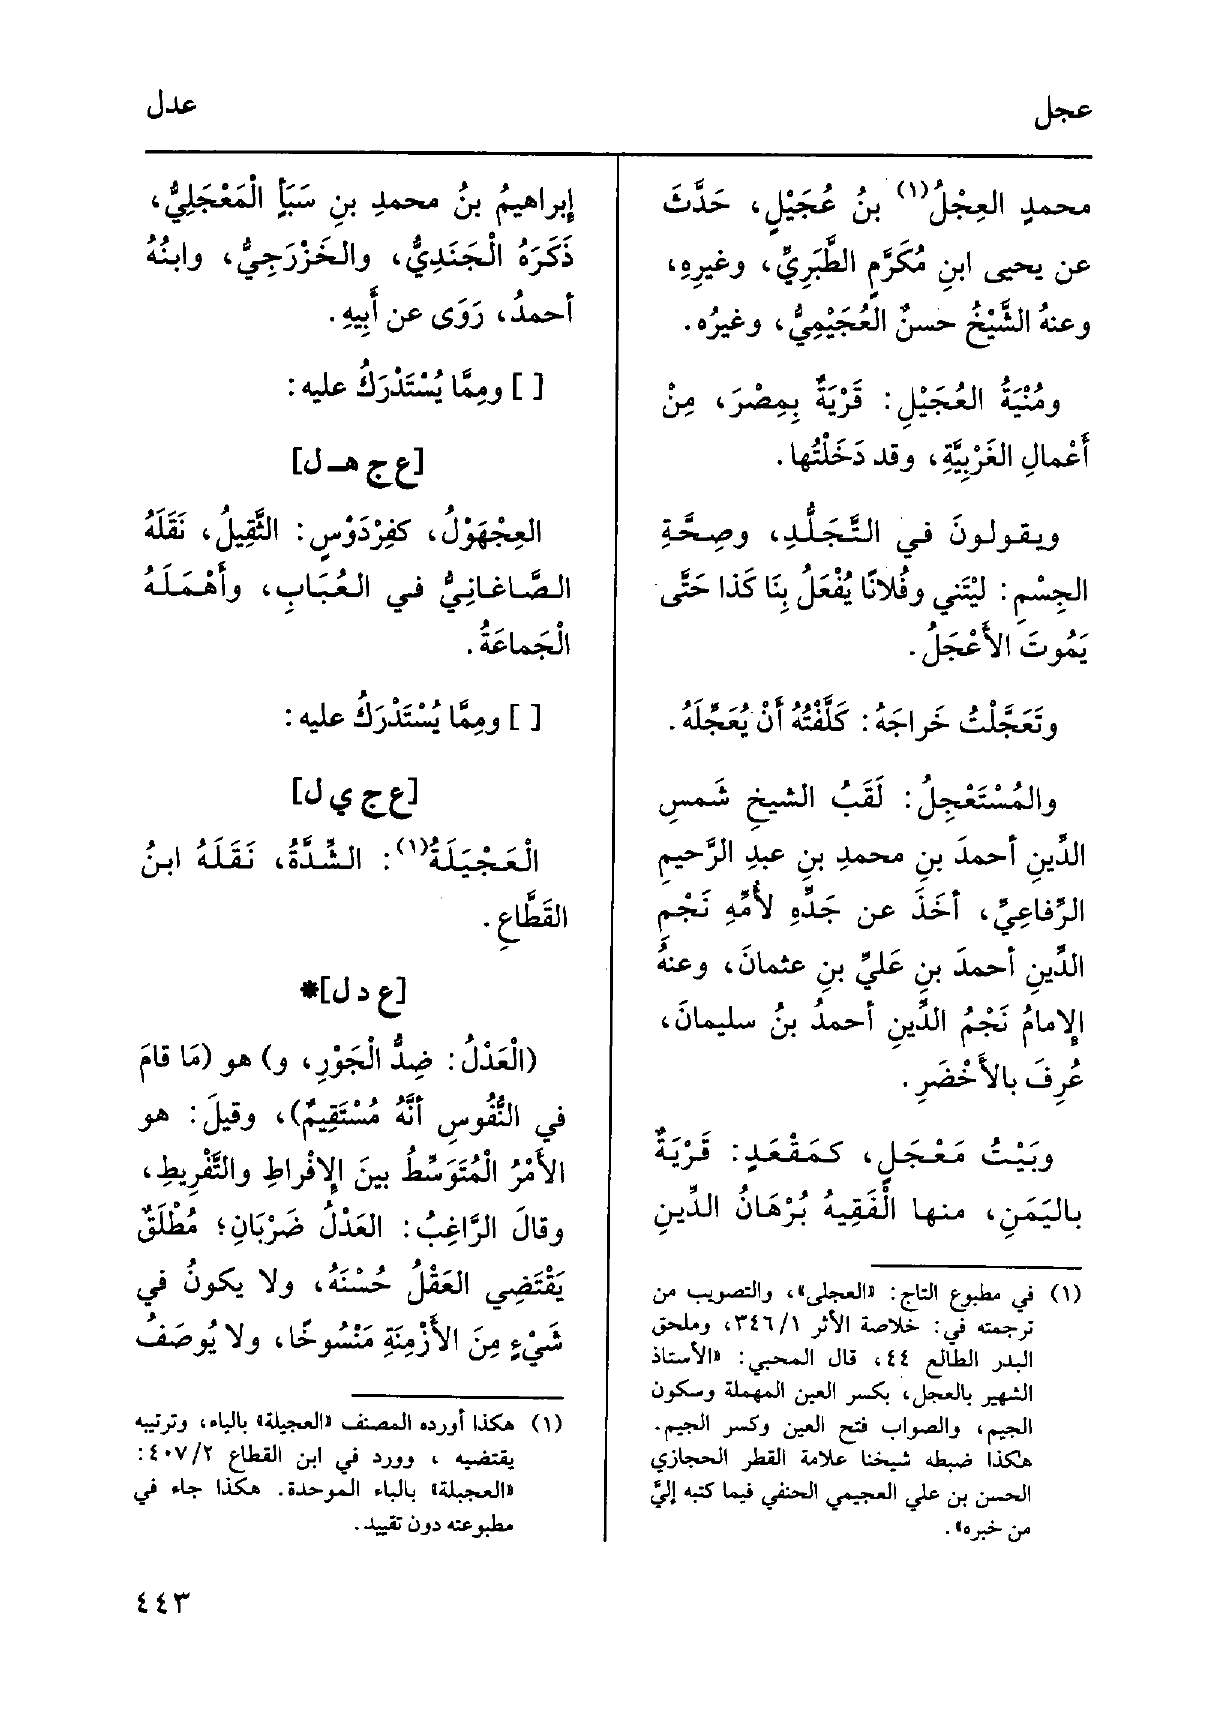 عجل
عدل
محمدٍ العِجْلُ(١) بنُ عُجَيْلٍ، حَدَّثَ
عن يحيى ابنِ مُكَرَّمٍ الطَّبَرِيِّ، وغيرِهِ،
وعنهُ الشَّيْخُ حسنٌ الْعُجَيْمِيُّ، وغيرُه.
ومُنْيَةُ العُجَيْلِ: قَرْيَةٌ بِمِصْرَ، مِنْ
أَعْمالِ الغَرْبِيَّةِ، وقد دَخَلْتُها.
ويقولونَ في التَّجَلُّدِ، وصِحَّةِ
الجِسْمِ: لَيْتَني وفُلانًا يُفْعَلُ بِنَا كَذا حَتَّى
يَمُوتَ الأَعْجَلُ.
وتَعَجَّلْتُ خَراجَهُ: كَلَّفْتُهُ أَنْ يُعَجِّلَهُ.
والمُسْتَعْجِلُ: لَقَبُ الشيخِ شَمسِ
الدِّينِ أحمدَ بنِ محمدِ بنِ عبدِ الرَّحيمِ
الرِّفاعِيِّ، أخَذَ عن جَدِّهِ لأُمِّهِ نَجْمِ
الدِّينِ أحمدَ بنِ عَلِيِّ بنِ عثمانَ، وعنهُ
الإمامُ نَجْمُ الدِّينِ أحمدُ بنُ سليمانَ،
عُرِفَ بالأَخْضَرِ.
وبَيْتُ مَعْجَلٍ، كمَقْعَدٍ: قَرْيَةٌ
بالْيَمَنِ، منها الْفَقِيهُ بُرْهَانُ الدِّينِ
(١) في مطبوع التاج: «العجلى»، والتصويب من
ترجمته في: خلاصة الأثر ٣٤٦/١، وملحق
البدر الطالع ٤٤، قال المحبي: «الأستاذ
الشهير بالعجل، بكسر العين المهملة وسكون
الجيم، والصواب فتح العين وكسر الجيم.
هكذا ضبطه شيخنا علامة القطر الحجازي
الحسن بن علي العجيمي الحنفي فيما كتبه إليَّ
من خبره».
إبراهيمُ بنُ محمدِ بنِ سَبَأٍ الْمَعْجَلِيُّ،
ذَكَرَهُ الْجَنَدِيُّ، والخَزْرَجِيُّ، وابنُهُ
أحمدُ، رَوَى عن أَبِيهِ.
[ ] ومِمَّا يُسْتَدْرَكُ عليه:
[ع ج هـ ل]
العِجْهَوْلُ، كفِرْدَوْسٍ: الثَّقِيلُ، نَقَلَهُ
الصَّاغانِيُّ في العُبَابِ، وأَهْمَلَهُ
الْجَماعَةُ.
[ ] ومِمَّا يُسْتَدْرَكُ عليه:
[ع ج ي ل]
الْعَجْيَلَةُ(١): الشِّدَّةُ، نَقَلَهُ ابنُ
القَطَّاعِ.
[ع د ل]*
(الْعَدْلُ: ضِدُّ الْجَوْرِ، و) هو (مَا قامَ
في النُّفُوسِ أنَّهُ مُسْتَقِيمٌ)، وقيلَ: هو
الأَمْرُ الْمُتَوَسِّطُ بينَ الإِفْراطِ والتَّفْرِيطِ،
وقالَ الرَّاغِبُ: العَدْلُ ضَرْبَانِ؛ مُطْلَقٌ
يَقْتَضِي العَقْلُ حُسْنَهُ، ولا يكونُ في
شَيْءٍ مِنَ الأَزْمِنَةِ مَنْسُوخًا، ولا يُوصَفُ
(١) هكذا أورده المصنف «العجيلة» بالياء، وترتيبه
يقتضيه ، وورد في ابن القطاع ٤٠٧/٢:
«العجبلة» بالباء الموحدة. هكذا جاء في
مطبوعته دون تقييد.
٤٤٣